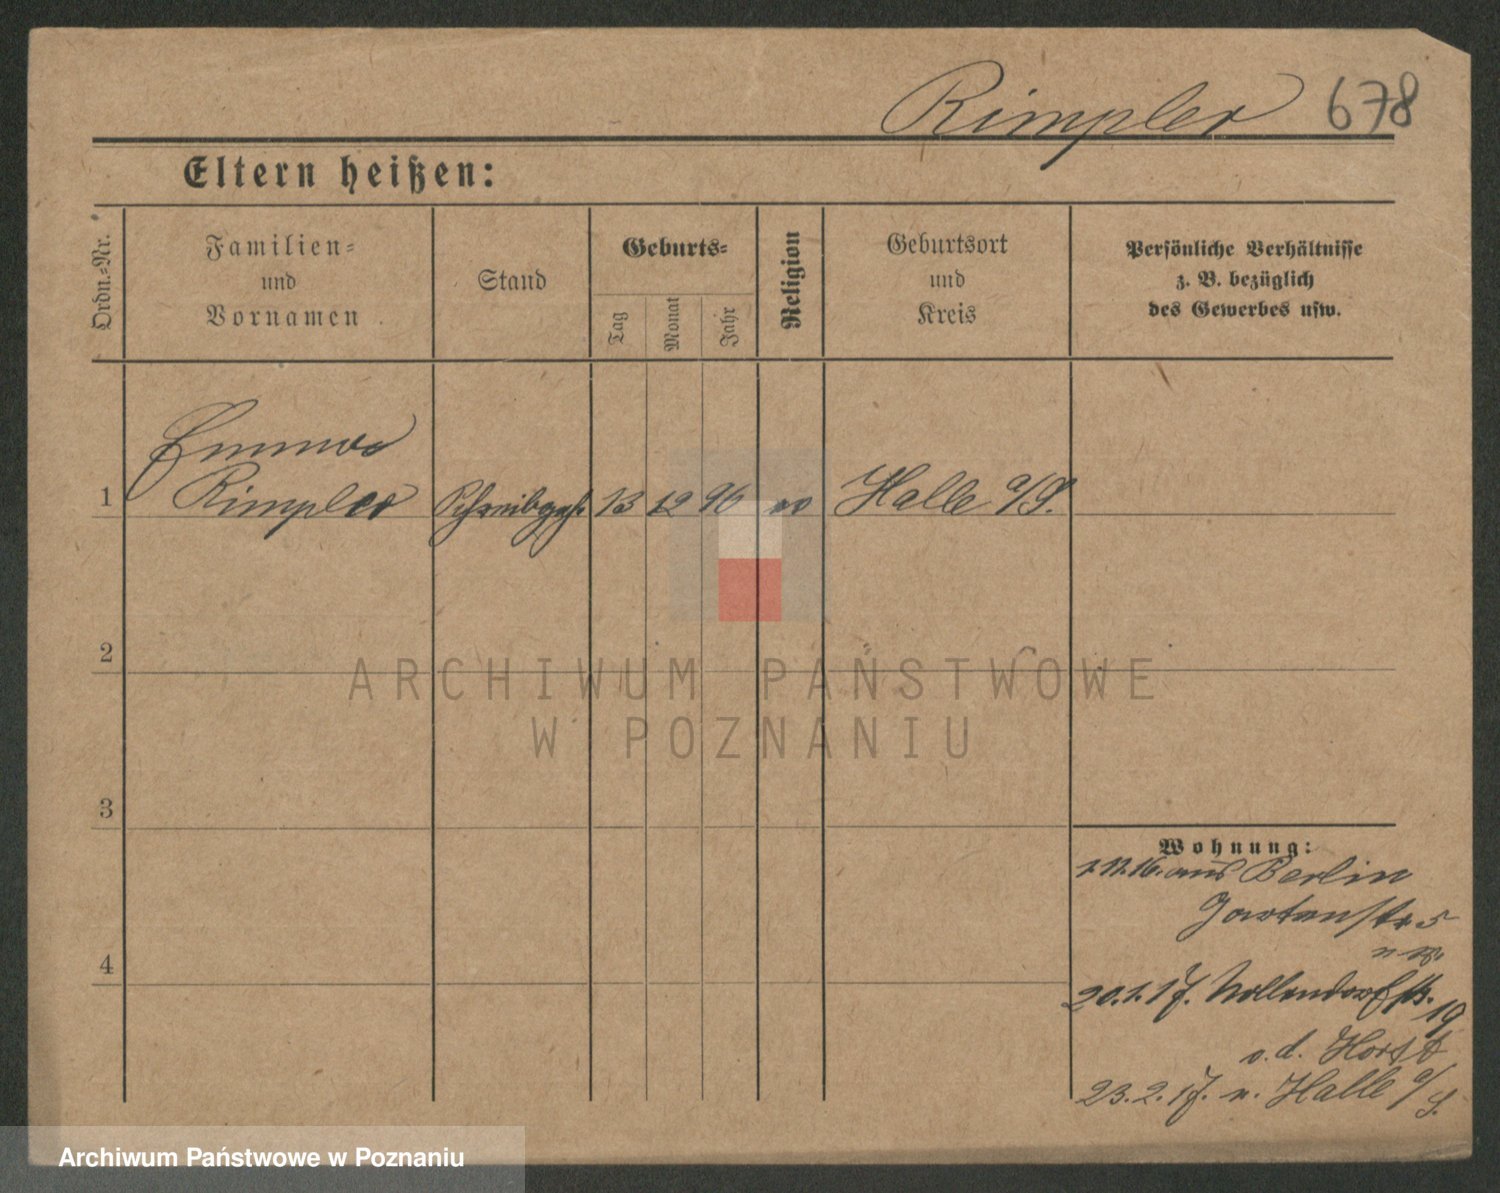 Rimpler 678
Eltern heißen:
Ordn.-Nr.
Familien-
und
Vornamen
Stand
Geburts-
Tag
Monat
Jahr
Religion
Geburtsort
und
Kreis
Persönliche Verhältnisse
z. B. bezüglich
des Gewerbes usw.
Emma
1 Rimpler Schreibgeh. 13 12 96 Halle a/S.
2
3
4
ARCHIWUM PAŃSTWOWE
W POZNANIU
Wohnung:
1.11.16. aus Berlin
Gartenstr 5
20.1.17. Nollendorfstr. 19
v. d. Horst
23.2.17. n. Halle a/S.
Archiwum Państwowe w Poznaniu